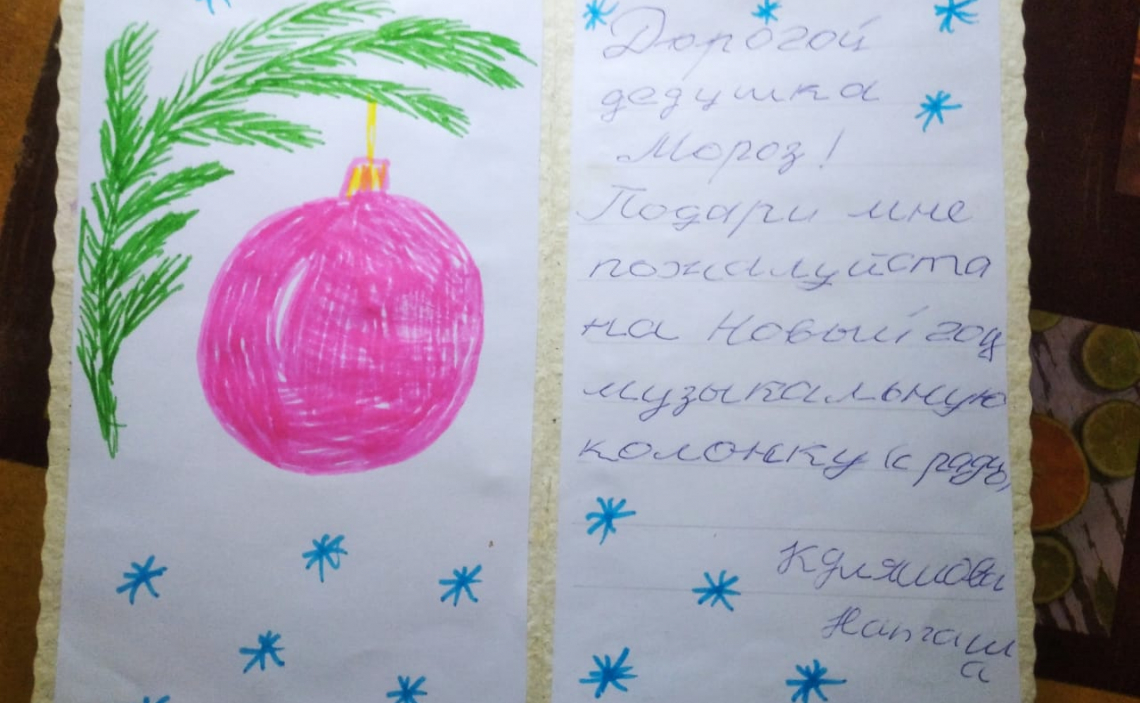 Дорогой
дедушка
Мороз!
Подари мне
пожалуйста
на Новый год
музыкальную
колонку (с
Куляшова
Наташ
а